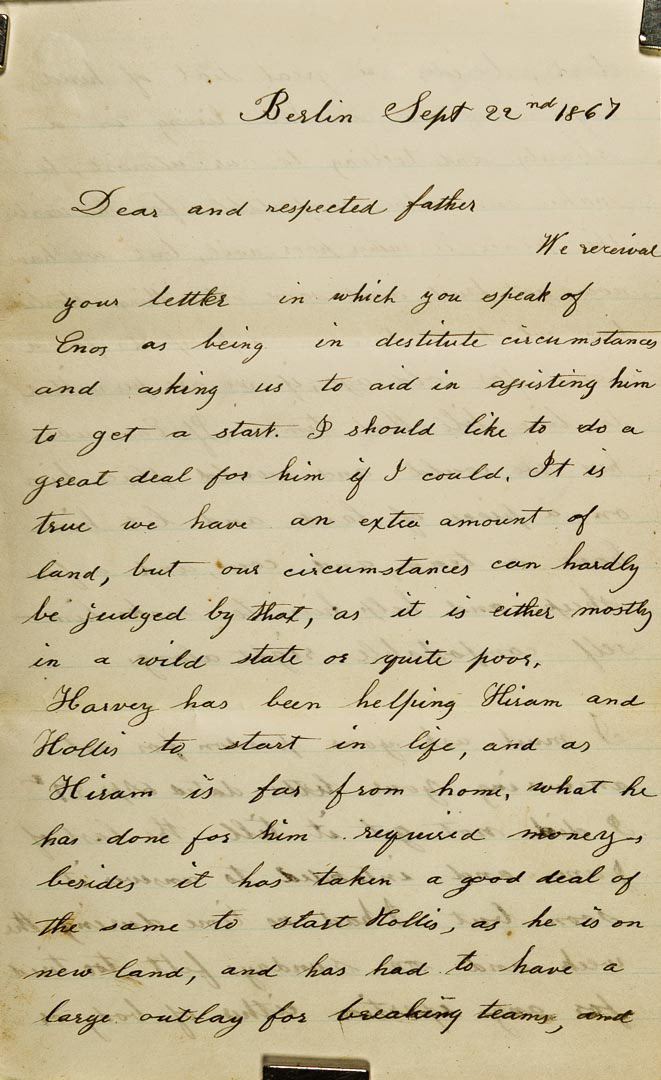 Berlin Sept 22nd 1867
Dear and respected father
We received
your letter in which you speak of
Enos as being in destitute circumstances
and asking us to aid in assisting him
to get a start. I should like to do a
great deal for him if I could. It is
true we have an extra amount of
land, but our circumstances can hardly
be judged by that, as it is either mostly
in a wild state or quite poor.
Harvey has been helping Hiram and
Hollis to start in life, and as
Hiram is far from home, what he
has done for him required money,
besides it has taken a good deal of
the same to start Hollis, as he is on
new land, and has had to have a
large outlay for breaking teams, and